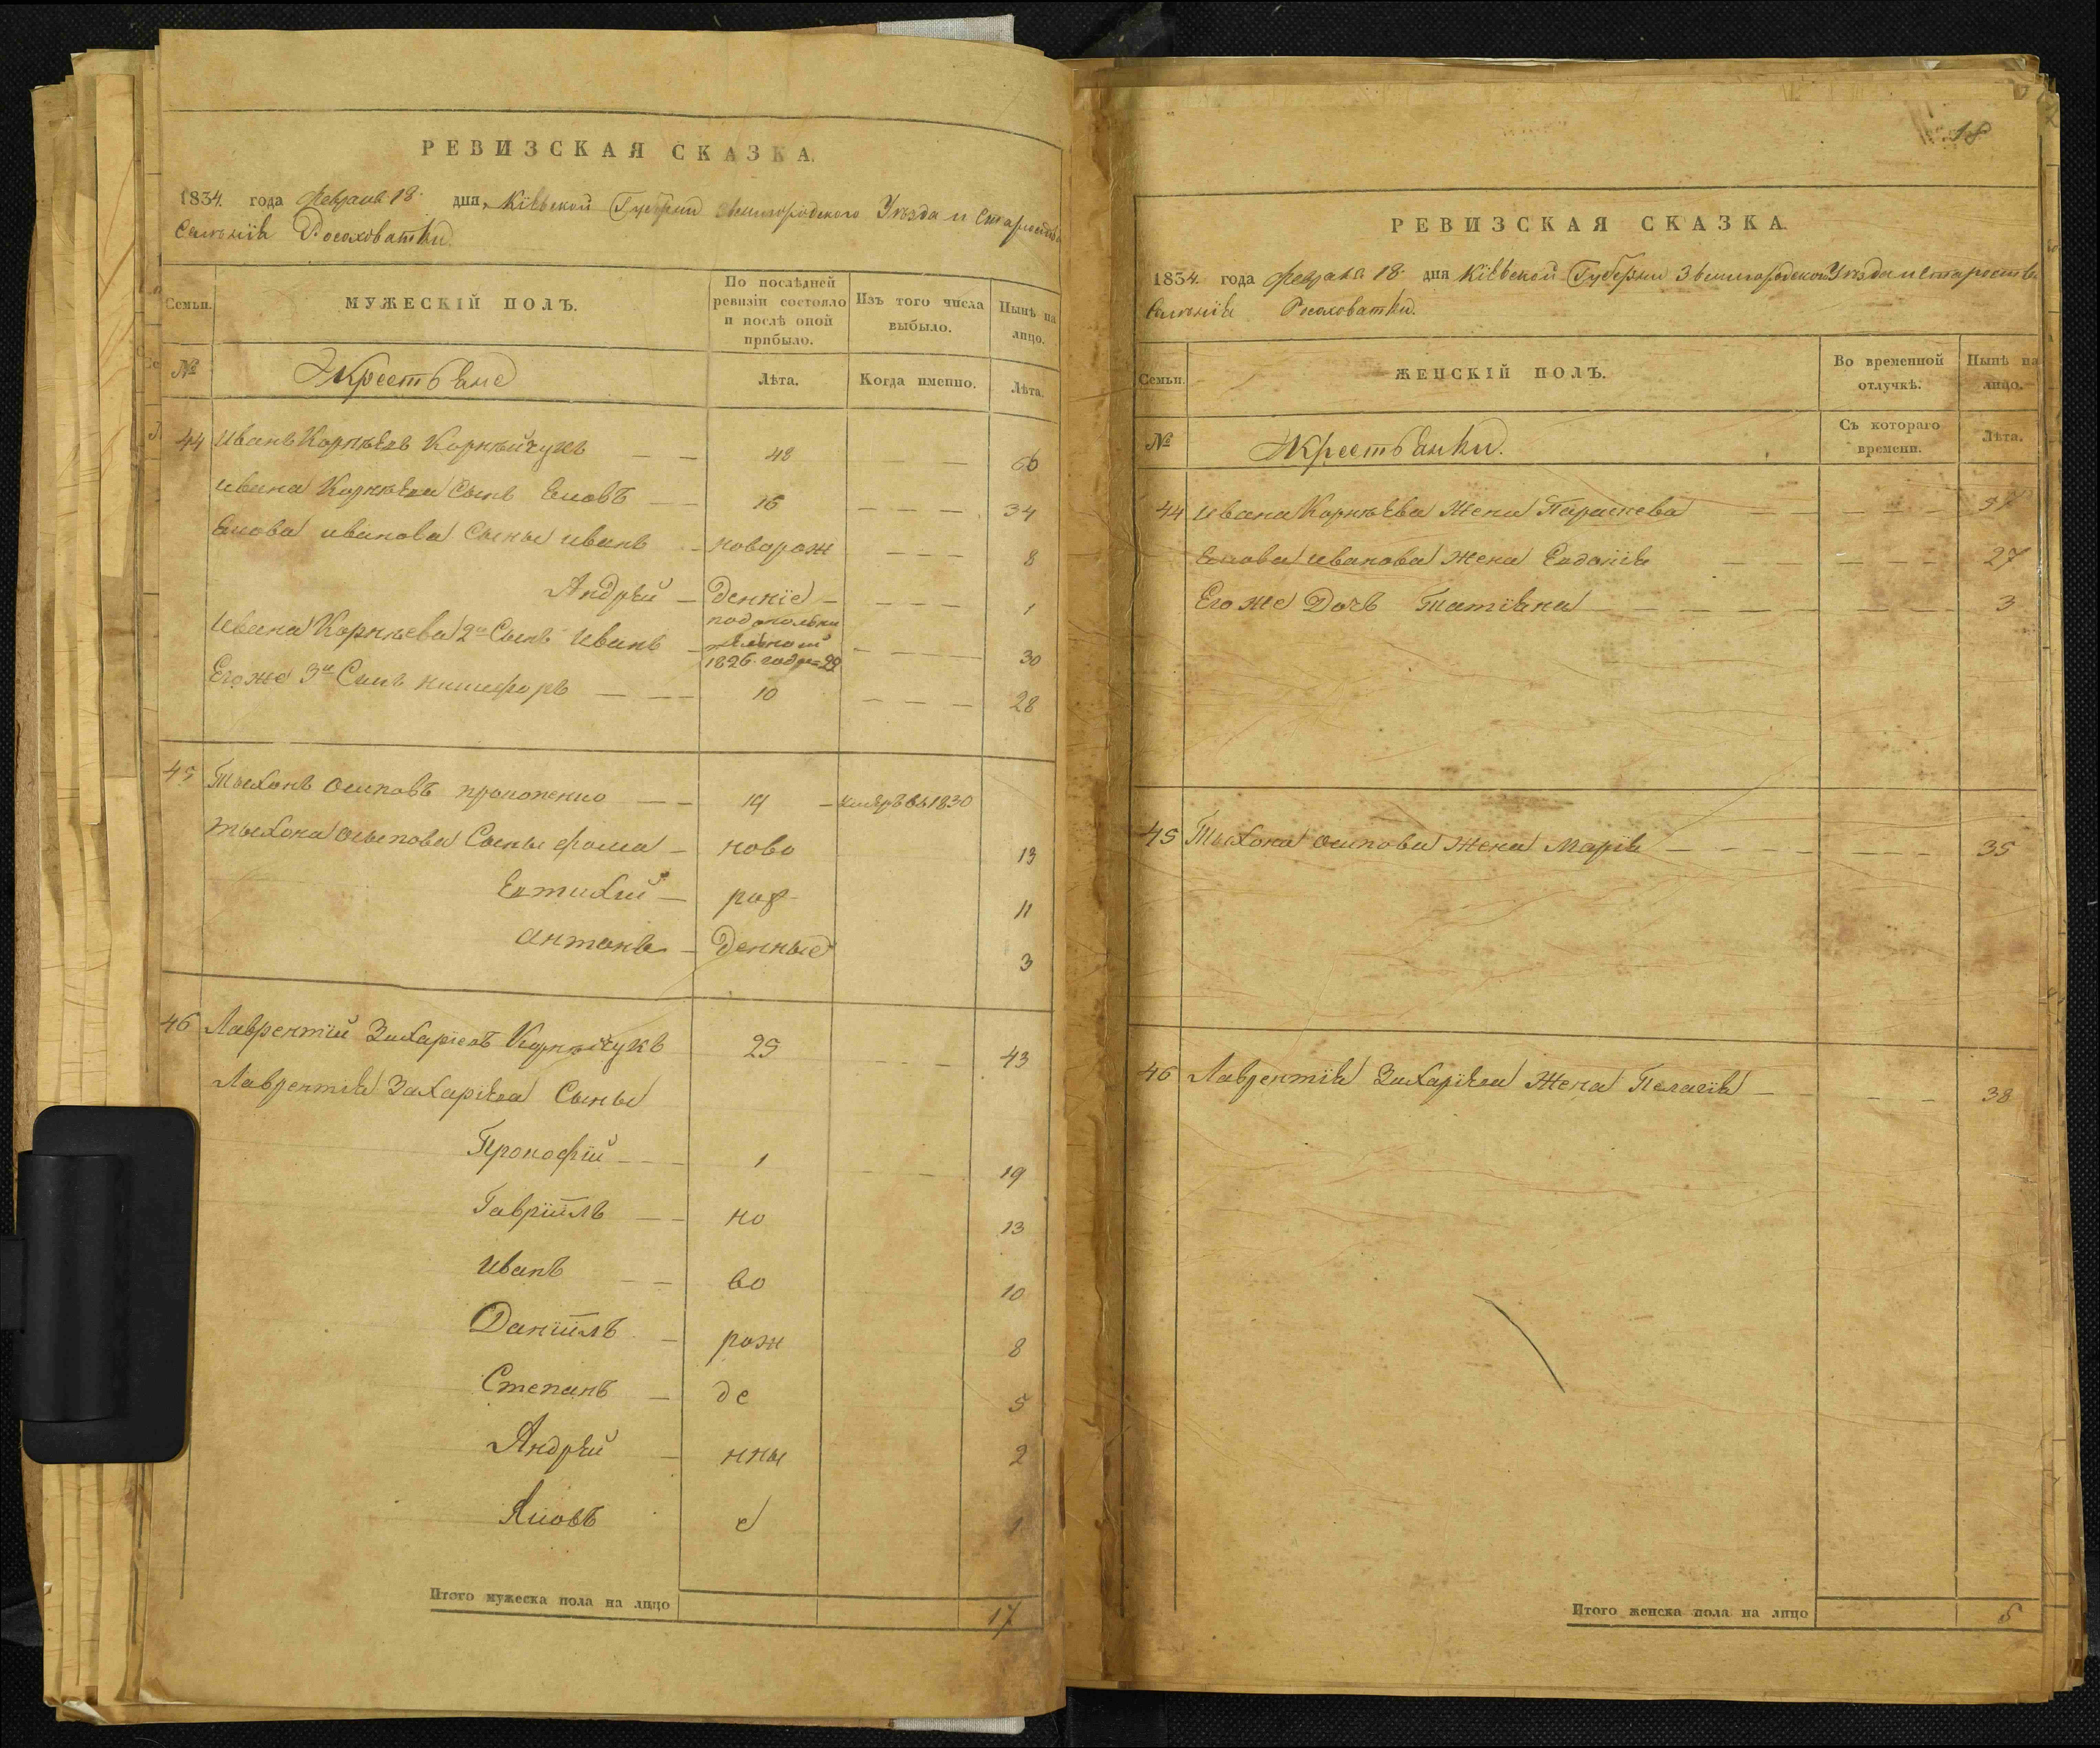 РЕВИЗСКАЯ СКАЗКА.
1834. года февраля 18. дня, Кіевской Губерніи Звенигородского Уѣзда и Староства
Селенія Росоховатки.
Семьи. МУЖЕСКІЙ ПОЛЪ. По послѣдней ревизіи состояло и послѣ оной прибыло. Изъ того числа выбыло. Нынѣ на лицо.
№ Крестьяне Лѣта. Когда именно. Лѣта.
44 Иванъ Корнѣевъ Корнѣйчукъ — — 48 — — — 66
Ивана Корнѣева Сынъ Яковъ — — 16 — — — 34
Якова Иванова Сыны Иванъ — новорож — — — 8
Андрей — денніе — — — — 1
Ивана Корнѣева 2й Сынъ Иванъ — по дополни тельной 1826 года = 22 — — — 30
Его же 3й Сынъ Никифоръ — — — 10 — — — 28
45 Тыхонъ Осиповъ Прокопенко — — 19 — умеръ въ 1830
Тыхона Осыпова Сыны Фома — ново 13
Евтихий — рож 11
Антонъ — денные 3
46 Лаврентій Захаріевъ Корнѣйчукъ 25 — — — 43
Лаврентія Захаріева Сыны
Прокофій — — 1 — — — 19
Гавріилъ — — но 13
Иванъ — — во 10
Даніилъ — рож 8
Степанъ — де 5
Андрей — нны 2
Яковъ е 1
Итого мужеска пола на лицо 17
18
РЕВИЗСКАЯ СКАЗКА.
1834. года февраля 18. дня Кіевской Губерніи Звенигородского Уѣзда и Староства
Селенія Росоховатки.
Семьи. ЖЕНСКІЙ ПОЛЪ. Во временной отлучкѣ. Нынѣ на лицо.
№ Крестьянки. Съ котораго времени. Лѣта.
44 Ивана Корнѣева Жена Параскева — — — — — 57
Якова Иванова Жена Евдокія — — — — — — 27
Его же Дочь Татіяна — — — — — — — 3
45 Тыхона Осипова Жена Марія — — — — — — — 35
46 Лаврентія Захаріева Жена Пелагія — — — — 38
Итого женска пола на лицо 5